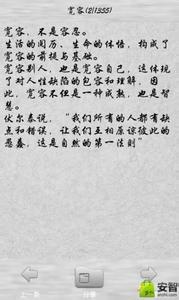 宽容(2/1355)
宽容，不是容忍。
生活的阅历、生命的体悟，构成了宽容的前提与基础。
宽容别人，也是宽容自己，这体现了对人性缺陷的包容和理解，因此，宽容不但是一种成熟，也是智慧。
伏尔泰说，“我们所有的人都有缺点和错误，让我们互相原谅彼此的愚蠢，这是自然的第一法则”
上一条
下一条
安智
anzhi.com